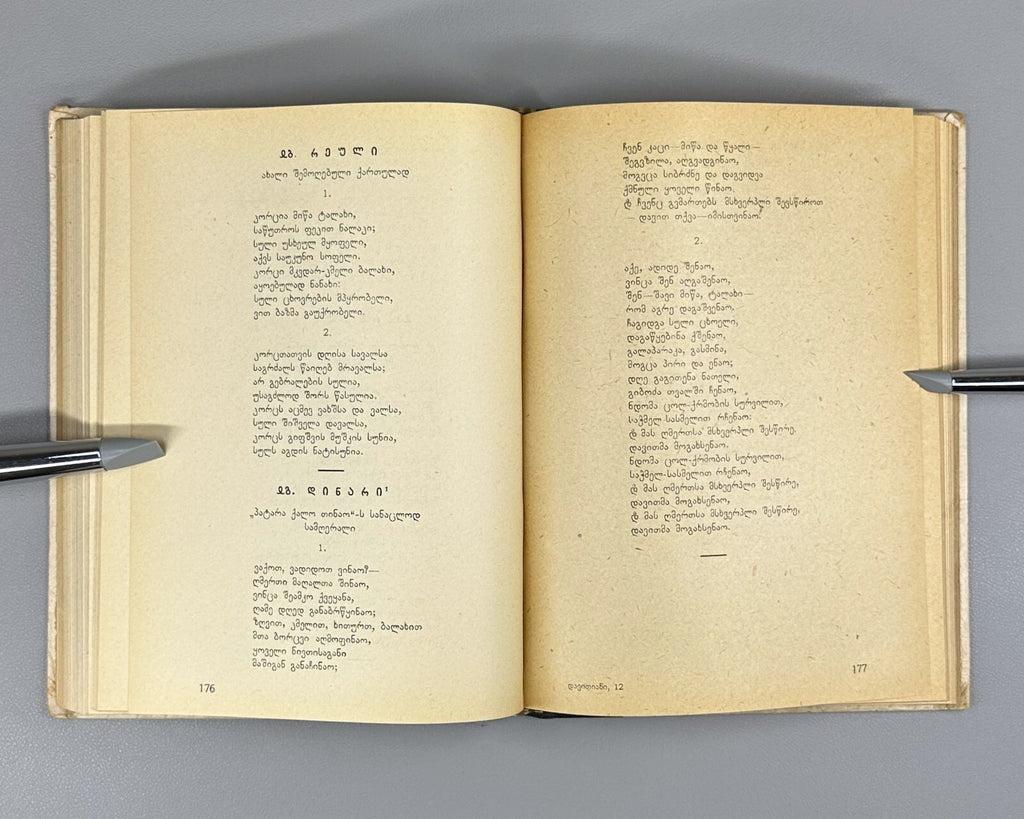 ჲგ. რეული
ახალი შემოღებული ქართულად
1.
კორცია მიწა ტალახი,
საწუთროს ფეკით ნალაკი;
სული უსხეულ მყოფელი,
აქვს საუკუნო სოფელი.
კორცი მკვდარ-კმელი ბალახი,
აყოებულად ნანახი:
სული ცხოვრების მპყრობელი,
ვით ბაზმა გაუქრობელი.
2.
კორცთათვის დღისა სავალსა
საგრძალს წაიღებ მრავალსა;
არ გებრალების სულია,
უსაგძლოდ შორს წასულია.
კორცს აცმევ ვახშსა და ვალსა,
სული შიშველა დავალსა,
კორცს გიფშვის მუშკის სუნია,
სულს აგდის ნატისუნია.
ჲგ. დინარი¹
„პატარა ქალო თინაო“-ს სანაცლოდ
სამღერალი
1.
ვაქოთ, ვადიდოთ ვინაო?—
ღმერთი მაღალთა შინაო,
ვინცა შეამკო ქვეყანა,
ღამე დღედ განაბრწყინაო;
ზღვით, კმელით, ხითურთ, ბალახით
მთა ბორცვი აღმოფინაო,
ყოველი ნივთისაგანი
მაშიგან განაჩინაო;
176
ჩვენ კაცი—მიწა და წყალი—
შეგვზილა, აღგვადგინაო,
მოგვცა სიბრძნე და დაგვიდვა
ქმნული ყოველი წინაო.
და ჩვენც გვმართებს მსხვერპლი შევსწიროთ
— დავით თქვა—იმისთვინაო.
2.
აქე, ადიდე შენაო,
ვინცა შენ აღგაშენაო,
შენ—შავი მიწა, ტალახი—
რომ აგრე დაგაშვენაო.
ჩაგიდგა სული ცხოელი,
დაგაწყებინა ქშენაო,
გალაპარაკა, გასმინა,
მოგცა პირი და ენაო;
დღე გაგითენა ნათელი,
გიბოძა თვალში ჩენაო,
ნდომა ცოლ-ქრმობის სურვილით,
საჭმელ-სასმელით რჩენაო:
და მას ღმერთსა მსხვერპლი შესწირე,
დავითმა მოგახსენაო.
ნდომა ცოლ-ქრმობის სურვილით,
საჭმელ-სასმელით რჩენაო,
და მას ღმერთსა მსხვერპლი შესწირე,
დავითმა მოგახსენაო,
და მას ღმერთსა მსხვერპლი შესწირე,
დავითმა მოგახსენაო.
დავითიანი, 12
177